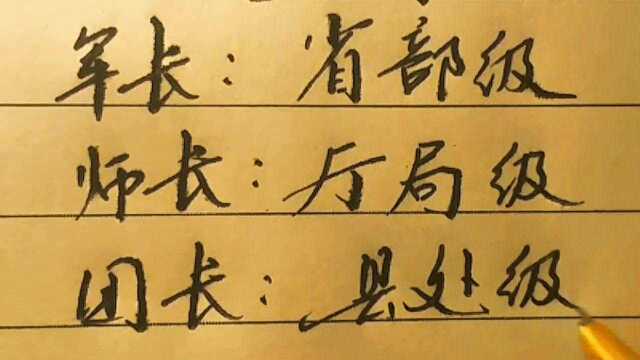 军长：省部级
师长：厅局级
团长：县处级